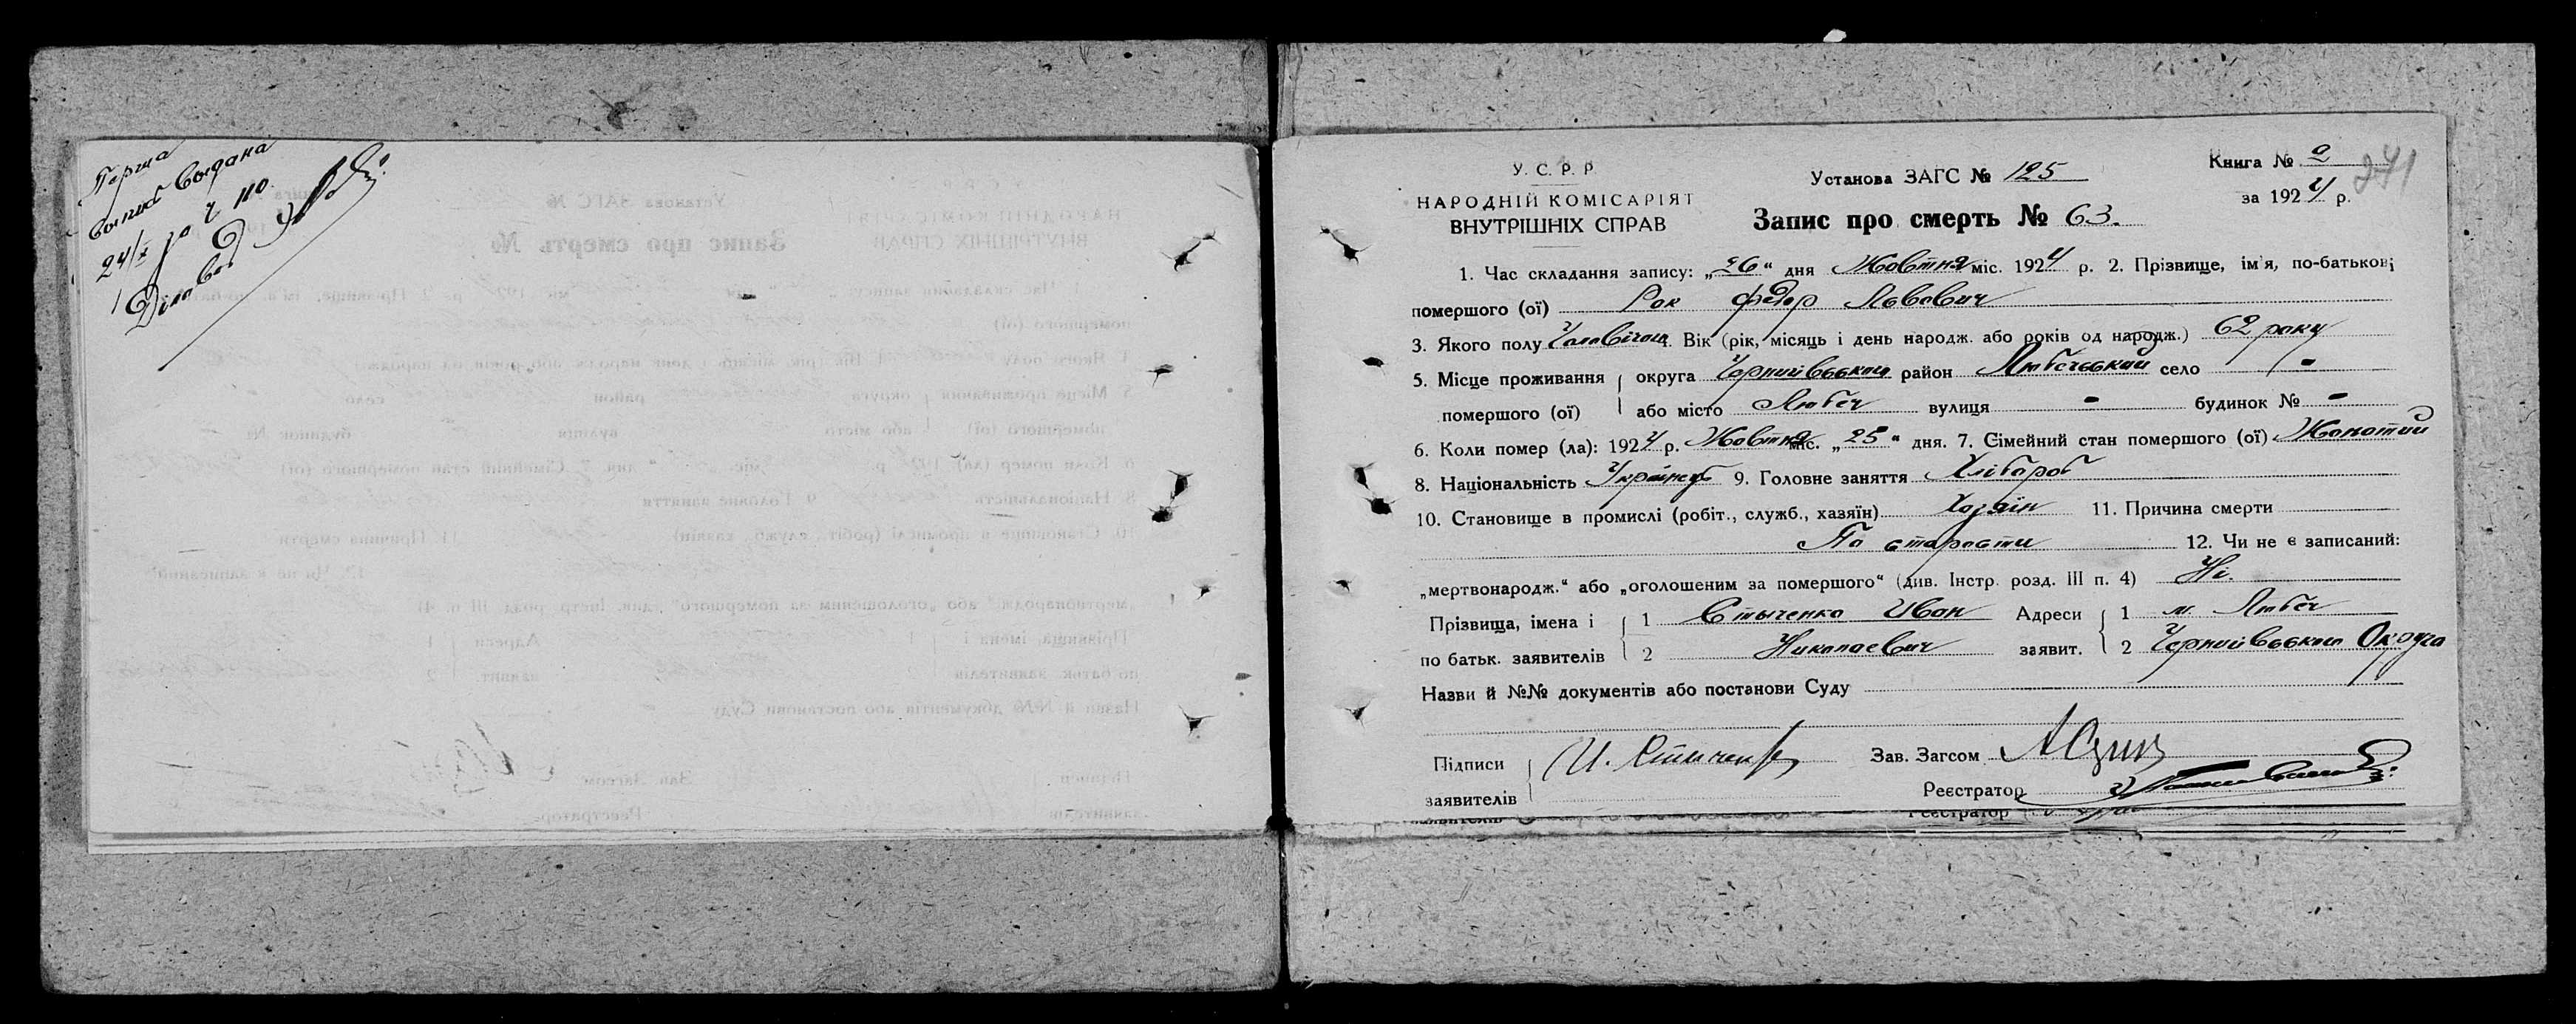 Перша
выпись выдана
24/X
У. С. Р. Р.
НАРОДНІЙ КОМІСАРІЯТ
ВНУТРІШНІХ СПРАВ
Установа ЗАГС № 125
Запис про смерть № 63.
Книга № 2
за 1924 р.
241
1. Час складання запису: „26“ дня Жовтня міс. 1924 р. 2. Прізвище, ім'я, по-батькові
помершого (ої) Рок Федор Львович
3. Якого полу Чоловічого 4. Вік (рік, місяць і день народж. або років од народж.) 62 року
5. Місце проживання округа район Любечський село -
помершого (ої) або місто Любеч вулиця - будинок № -
6. Коли помер (ла): 1924 р. Жовтня міс. „25“ дня. 7. Сімейний стан помершого (ої) Жонотий
8. Національність Українець 9. Головне заняття Хлібороб
10. Становище в промислі (робіт., служб., хазяїн) Хозяїн 11. Причина смерти
По старости 12. Чи не є записаний:
„мертвонародж.“ або „оголошеним за помершого“ (див. Інстр. розд. III п. 4) Ні.
Прізвища, імена і 1 Стыченко Иван Адреси 1 м. Любеч
по батьк. заявителів 2 Николаевич заявит. 2 Округа
Назви й №№ документів або постанови Суду
Підписи И. Стиченко Зав. Загсом
заявителів Реєстратор
Реєстратор